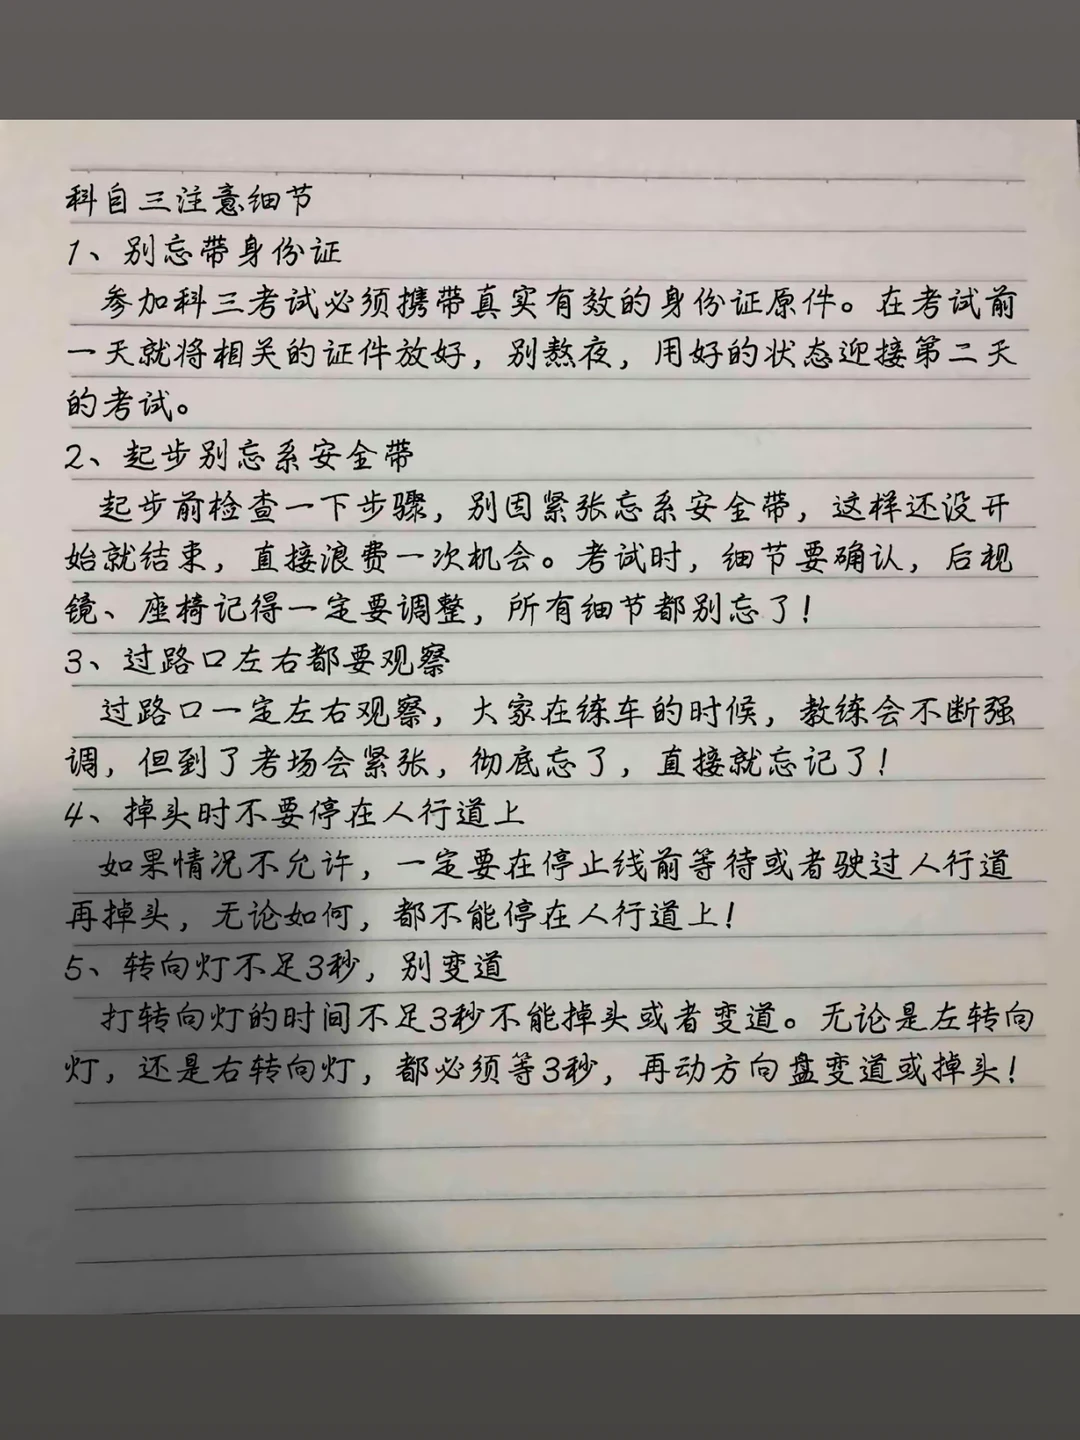 科目三注意细节
1、别忘带身份证
参加科三考试必须携带真实有效的身份证原件。在考试前
一天就将相关的证件放好，别熬夜，用好的状态迎接第二天
的考试。
2、起步别忘系安全带
起步前检查一下步骤，别因紧张忘系安全带，这样还没开
始就结束，直接浪费一次机会。考试时，细节要确认，后视
镜、座椅记得一定要调整，所有细节都别忘了！
3、过路口左右都要观察
过路口一定左右观察，大家在练车的时候，教练会不断强
调，但到了考场会紧张，彻底忘了，直接就忘记了！
4、掉头时不要停在人行道上
如果情况不允许，一定要在停止线前等待或者驶过人行道
再掉头，无论如何，都不能停在人行道上！
5、转向灯不足3秒，别变道
打转向灯的时间不足3秒不能掉头或者变道。无论是左转向
灯，还是右转向灯，都必须等3秒，再动方向盘变道或掉头！